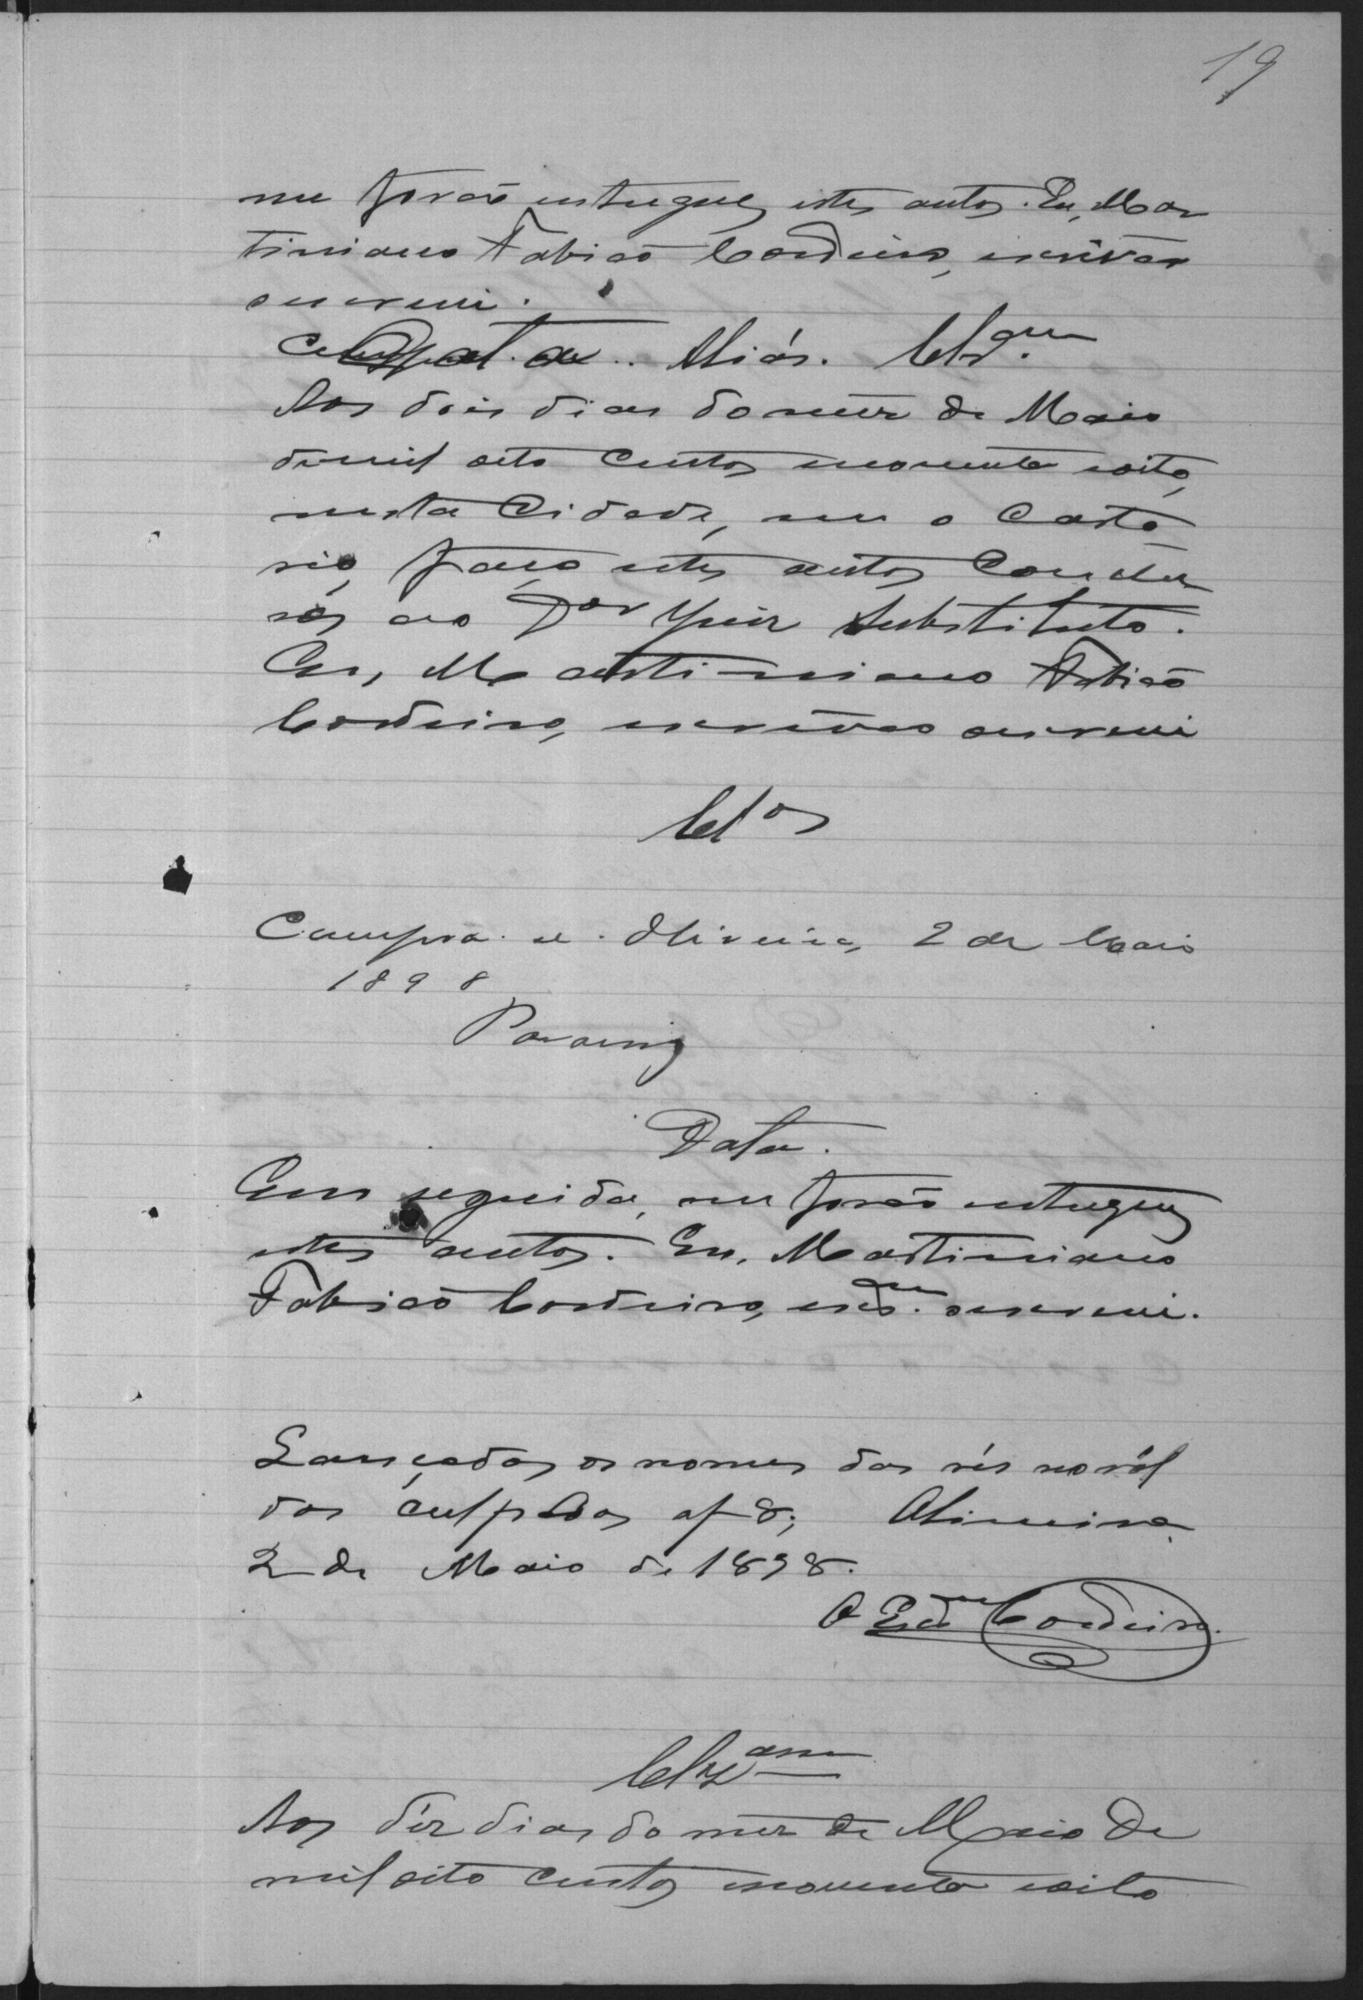 19
me forão entregues estes autos. Eu, Mar
tiniano Fabião Cordeiro, escrivão
escrevi.
Cls.am
Aos dois dias do mez de Maio
de mil oito centos noventa e oito,
nesta Cidade, em o Carto
rio, faço estes autos Conclu
sos ao Dor Juiz Substituto.
Eu, Martiniano Fabião
Cordeiro, escrivão escrevi
Clos
Cumpra-se. Oliveira, 2 de Maio
1898
Data.
Em seguida, me forão entregues
estes autos. Eu, Martiniano
Fabião Cordeiro, escm. escrevi.
Lançados os nomes dos réos no ról
dos culpados af 8; Oliveira
2 de Maio de 1898.
O Escm Cordeiro.
Clzam
Aos déz dias do mez de Maio de
mil oito centos noventa e oito